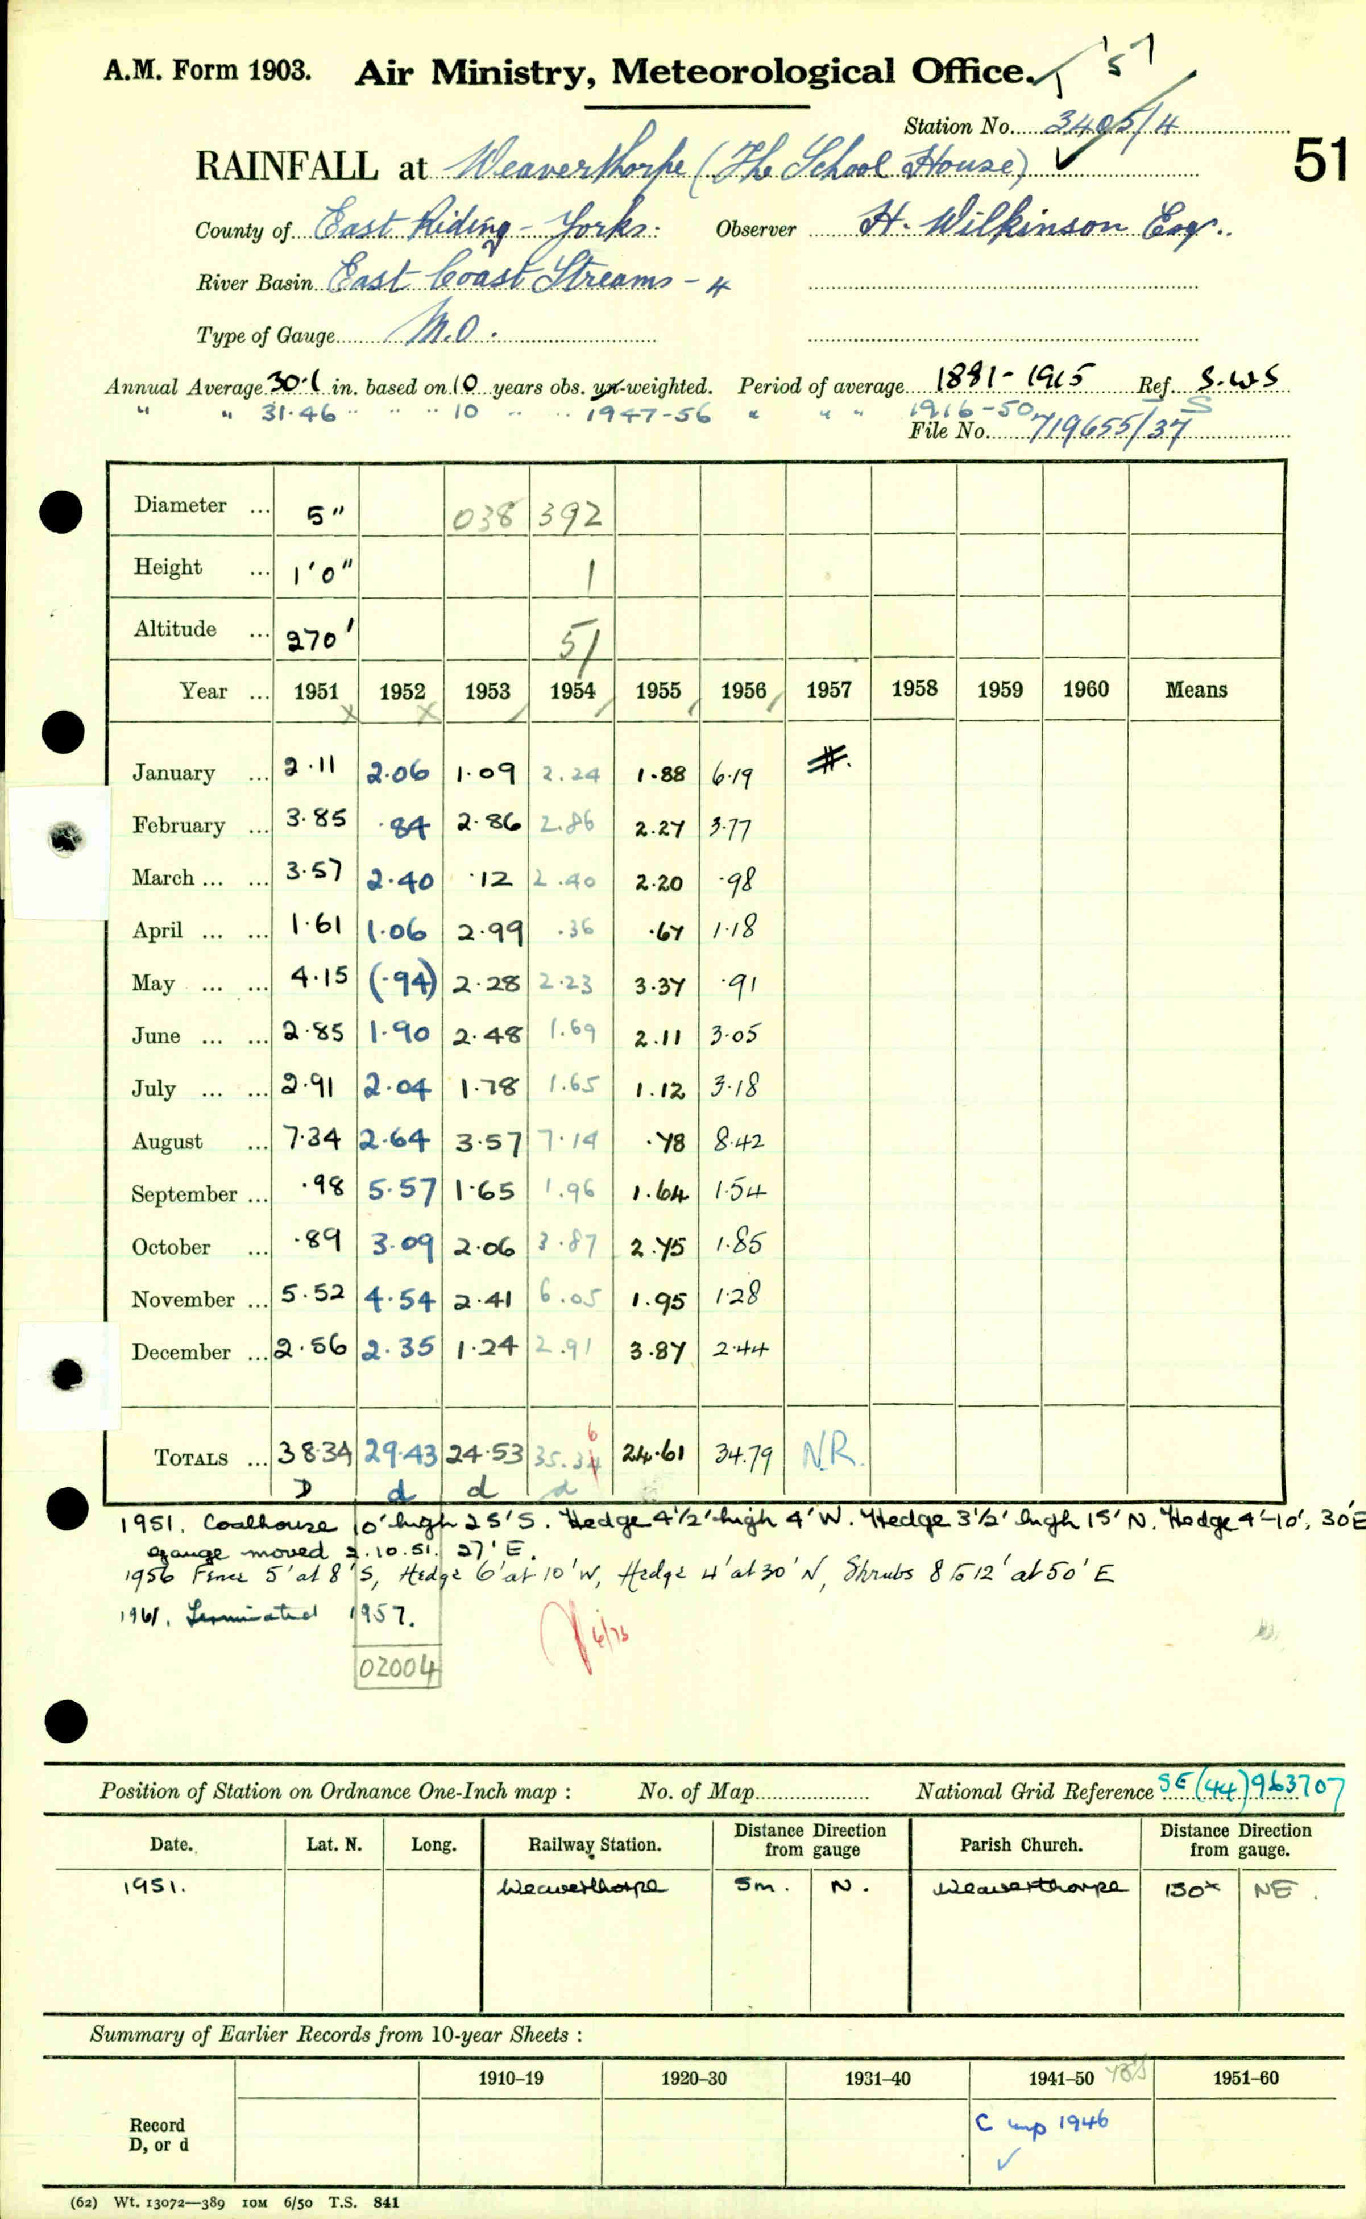 A.M. Form 1903. Air Ministry, Meteorological Office.
Station No. 3405/4
51
RAINFALL at Weaverthorpe (The School House)
County of East Riding - Yorks. Observer H. Wilkinson Esq.
River Basin East Coast Streams - 4
Type of Gauge M.O.
Annual Average 30·1 in. based on 10 years obs. un-weighted. Period of average 1881-1915 Ref. S.W.S
" " 31·46 " " " 10 " " 1947-56 " " " 1916-50 S
File No. 719655/37
Diameter ... 5" 038 392
Height ... 1'0" 1
Altitude ... 270' 51
Year ... 1951 1952 1953 1954 1955 1956 1957 1958 1959 1960 Means
January ... 2·11 2·06 1·09 2.24 1·88 6·19 #.
February ... 3·85 ·84 2·86 2.86 2.27 3·77
March ... ... 3·57 2·40 ·12 2.40 2·20 ·98
April ... ... 1·61 1·06 2·99 .36 ·67 1·18
May ... ... 4·15 (·94) 2·28 2·23 3·37 ·91
June ... ... 2·85 1·90 2·48 1.69 2.11 3·05
July ... ... 2·91 2·04 1·78 1.65 1·12 3·18
August ... 7·34 2·64 3·57 7·14 ·78 8·42
September ... ·98 5·57 1·65 1.96 1.64 1·54
October ... ·89 3·09 2·06 3·87 2·75 1·85
November ... 5·52 4·54 2·41 6.05 1.95 1·28
December ... 2·56 2·35 1·24 2.91 3·87 2·44
TOTALS ... 38·34 29·43 24·53 35.34 6 24·61 34·79 N.R.
D d d d
1951. Coalhouse 10' high 25' S. Hedge 4½' high 4' W. Hedge 3½' high 15' N. Hedge 4'-10', 30'E
gauge moved 2.10.51. 27' E.
1956 Fence 5' at 8' S, Hedge 6' at 10' W, Hedge 4' at 30' N, Shrubs 8 to 12' at 50' E
1961. Terminated 1957.
6/73
02004
Position of Station on Ordnance One-Inch map : No. of Map National Grid Reference SE (44) 963707
Date. Lat. N. Long. Railway Station. Distance from gauge Direction Parish Church. Distance from gauge. Direction
1951. Weaverthorpe 5m. N. Weaverthorpe 130x NE.
Summary of Earlier Records from 10-year Sheets :
1910–19 1920–30 1931–40 1941–50 1951–60
Record D, or d
C inp 1946
(62) Wt. 13072—389 10M 6/50 T.S. 841